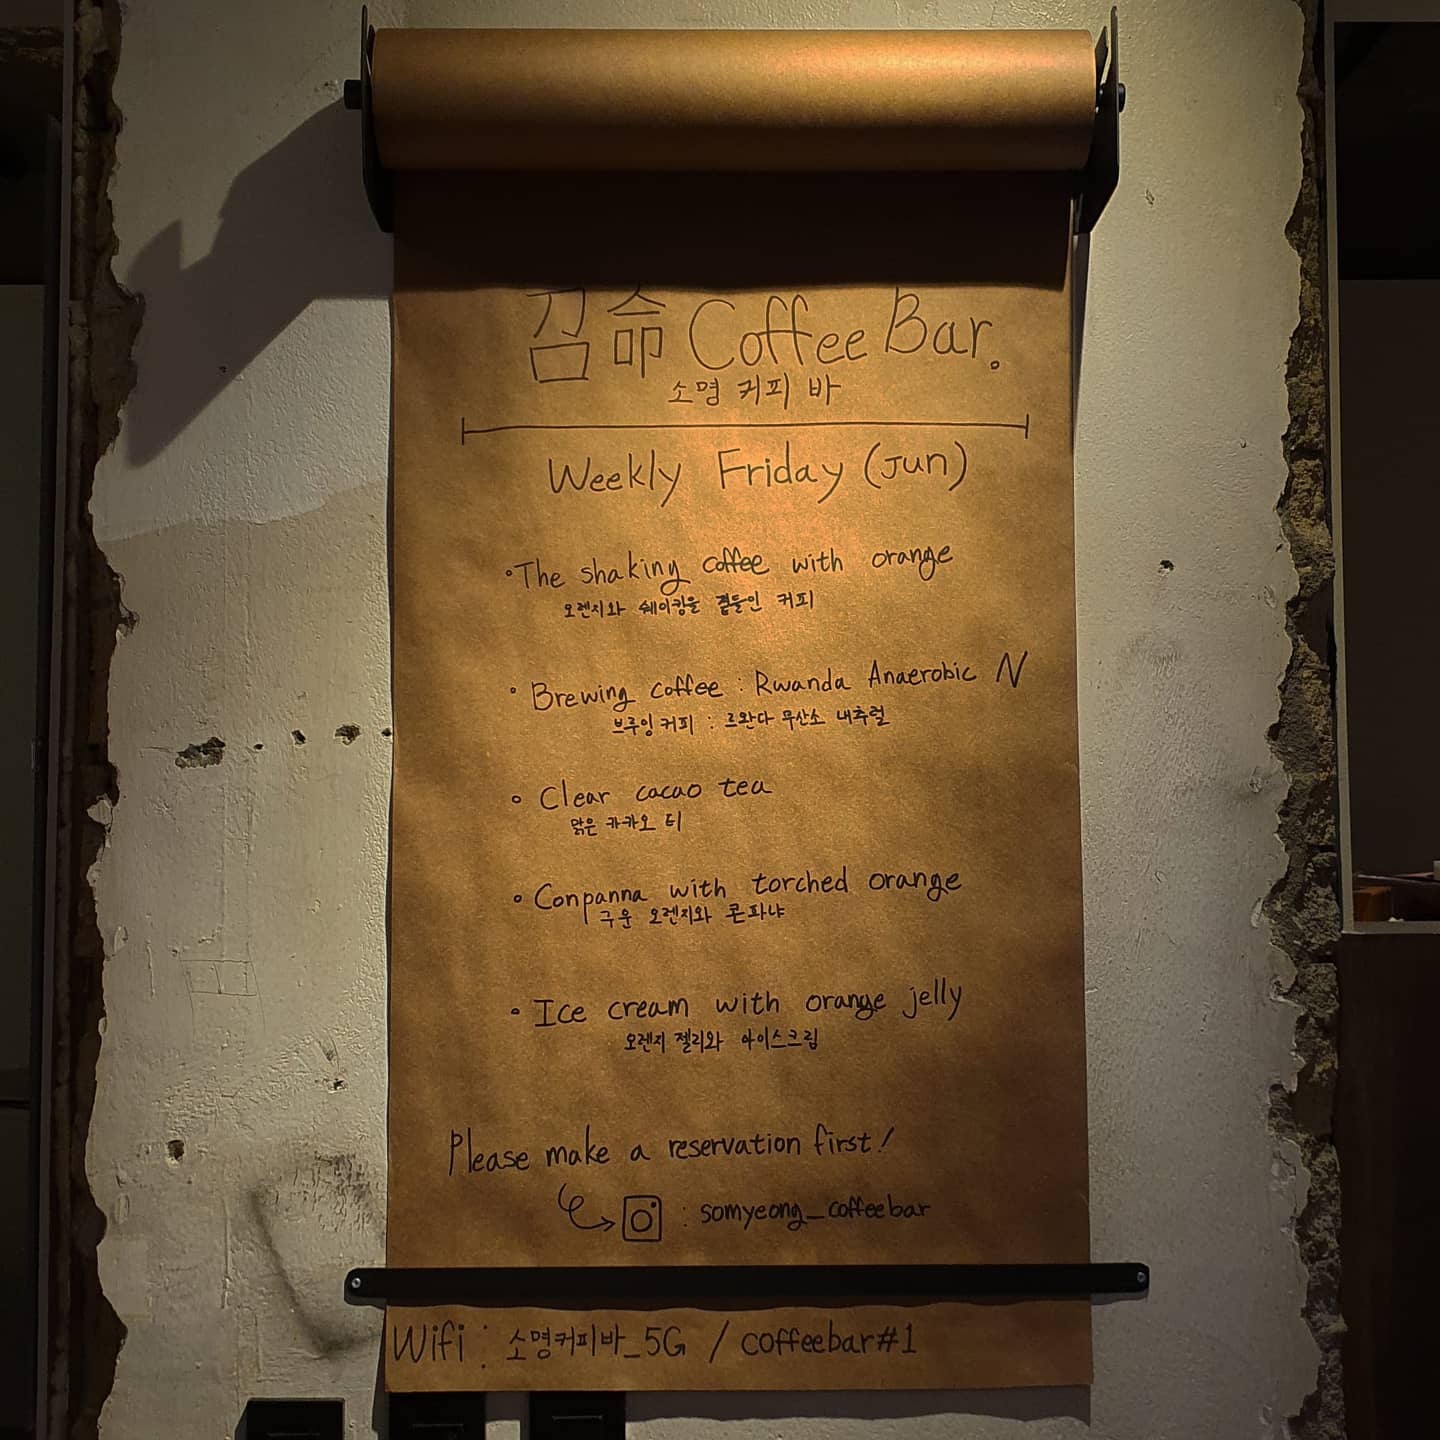 召命 Coffee Bar.
소명 커피 바
Weekly Friday (Jun)
The shaking coffee with orange
오렌지와 쉐이킹을 곁들인 커피
Brewing coffee : Rwanda Anaerobic N
브루잉 커피 : 르완다 무산소 내추럴
Clear cacao tea
맑은 카카오 티
Conpanna with torched orange
구운 오렌지와 콘파냐
Ice cream with orange jelly
오렌지 젤리와 아이스크림
Please make a reservation first!
: somyeong_coffeebar
Wifi : 소명커피바_5G / coffeebar#1